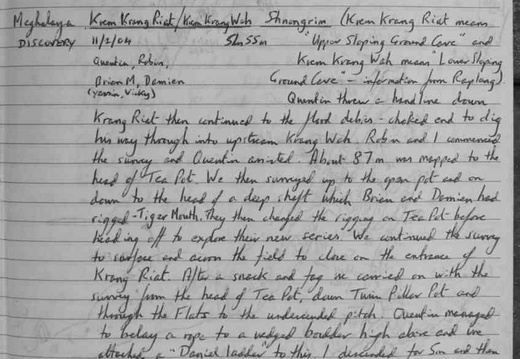 Meghalaya Krem Krang Riat/Krem Krang Wah Shnongrim (Krem Krang Riat means
DISCOVERY 11/2/04 5hr 55m "Upper Sloping Ground Cave" and
Quentin, Robin, Krem Krang Wah means "Lower Sloping
Brian M, Damien Ground Cave" - information from Raplang).
(Yasmin, Vicky) Quentin threw a handline down
Krang Riat then continued to the flood debris-choked end to dig
his way through into upstream Krang Wah. Robin and I commenced
the survey and Quentin assisted. About 87m was mapped to the
head of Tea Pot. We then surveyed up to the open pot and on
down to the head of a deep shaft which Brian and Damien had
rigged - Tiger Mouth. They then changed the rigging on Tea Pot before
heading off to explore their new series. We continued the survey
to surface and across the field to close on the entrance of
Krang Riat. After a snack and fag we carried on with the
survey from the head of Tea Pot, down Twin Pillar Pot and
through the Flats to the undescended pitch. Quentin managed
to belay a rope to a wedged boulder high above and we
attached a "Daniel ladder" to this. I descended for 5m and then